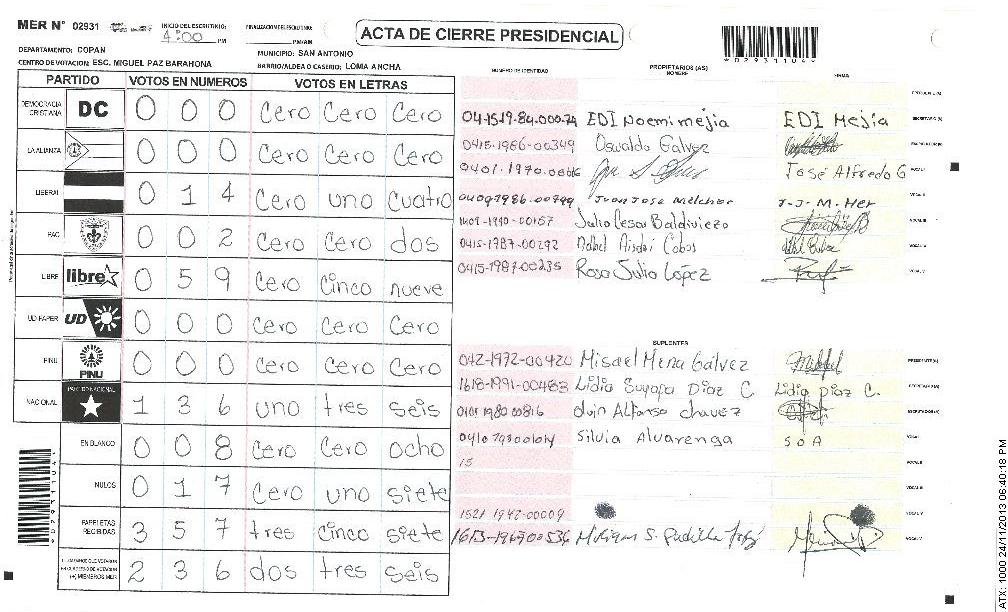 MER N° 02931
INICIO DEL ESCRUTINIO:
4:00 PM
FINALIZACION DEL ESCRUTINIO:
PM/AM
ACTA DE CIERRE PRESIDENCIAL
*02931104*
DEPARTAMENTO: COPAN
MUNICIPIO: SAN ANTONIO
CENTRO DE VOTACION: ESC. MIGUEL PAZ BARAHONA
BARRIO/ALDEA O CASERIO: LOMA ANCHA
PARTIDO VOTOS EN NUMEROS VOTOS EN LETRAS
NUMERO DE IDENTIDAD PROPIETARIOS (AS) NOMBRE FIRMA
DEMOCRACIA CRISTIANA DC 0 0 0 Cero Cero Cero
LA ALIANZA 0 0 0 Cero Cero Cero
LIBERAL 0 1 4 Cero uno cuatro
PAC 0 0 2 Cero Cero dos
LIBRE libre 0 5 9 Cero Cinco nueve
UD-FAPER UD 0 0 0 Cero Cero Cero
PINU PINU 0 0 0 Cero Cero Cero
NACIONAL PARTIDO NACIONAL 1 3 6 uno tres seis
EN BLANCO 0 0 8 Cero Cero ocho
NULOS 0 1 7 Cero uno siete
PAPELETAS RECIBIDAS 3 5 7 tres cinco siete
(+) MIEMBROS MER 2 3 6 dos tres seis
EDI Noemi mejia EDI Mejia SECRETARIO (A)
0415-1986-00349 Oswaldo Galvez ESCRUTADOR (A)
José Alfredo G VOCAL I
Juan Jose Melchor J-J-M-Her VOCAL II
Julio Cesar Baldiviezo VOCAL III
0415-1987-00292 Cobos VOCAL IV
0415-1987-00235 Rosa Julio López VOCAL V
SUPLENTES
042-1972-00420 Misael Mena Gálvez PRESIDENTE (A)
1618-1991-00483 Lidia Suyapa Diaz C. Lidia Diaz C. SECRETARIO (A)
Alfonso chavez ESCRUTADOR (A)
Silvia Alvarenga S O A VOCAL I
15 VOCAL II
VOCAL III
1521 1942-00009 VOCAL IV
S. Padilla VOCAL V
*02931104*
ATX: 1000 24/11/2013 06:40:18 PM